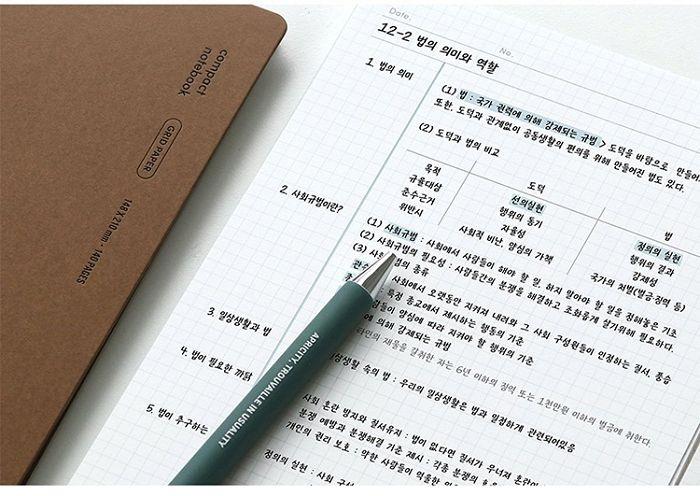 compact
notebook
GRID PAPER
148 X 210 mm - 140 PAGES
Date.
No.
12-2 법의 의미와 역할
1. 법의 의미
(1) 법 : 국가 권력에 의해 강제되는 규범 > 도덕을 바탕으로 만들어
또한, 도덕과 관계없이 공동생활의 편의를 위해 만들어진 법도 있다.
(2) 도덕과 법의 비교
도덕 법
목적 선의실현 정의의 실현
규율대상 행위의 동기 행위의 결과
준수근거 자율성 강제성
위반시 사회적 비난, 양심의 가책 국가의 처벌(벌금징력 등)
2. 사회규범이란?
(1) 사회규범 : 사회에서 사람들이 해야 할 일, 하지 말아야 할 일을 정해놓은 기초
(2) 사회규범의 필요성 : 사람들간의 분쟁을 해결하고 조화롭게 살기위해 필요하다.
(3) 사회 범의 종류
사회에서 오랫동안 지켜져 내려와 그 사회 구성원들이 인정하는 질서, 풍습
: 특정 종교에서 제시하는 행동의 기준
사람들이 양심에 따라 지켜야 할 행위의 기준
에 의해 강제되는 규범
타인의 재물을 갈취한 자는 6년 이하의 징역 또는 1천만원 이하의 벌금에 취한다.
3. 일상생활과 법
일상생활 속의 법 : 우리의 일상생활은 법과 밀접하게 관련되어있음
4. 법이 필요한 까닭
사회 혼란 방지와 질서유지 : 법이 없다면 질서가 무너져 혼란이
분쟁 예방과 분쟁해결 기준 제시 : 각종 분쟁의
개인의 권리 보호 : 약한 사람들이 억울한
5. 법이 추구하는
정의의 실현 : 사회 구성
APRICITY, TROUVAILLE IN USUALITY